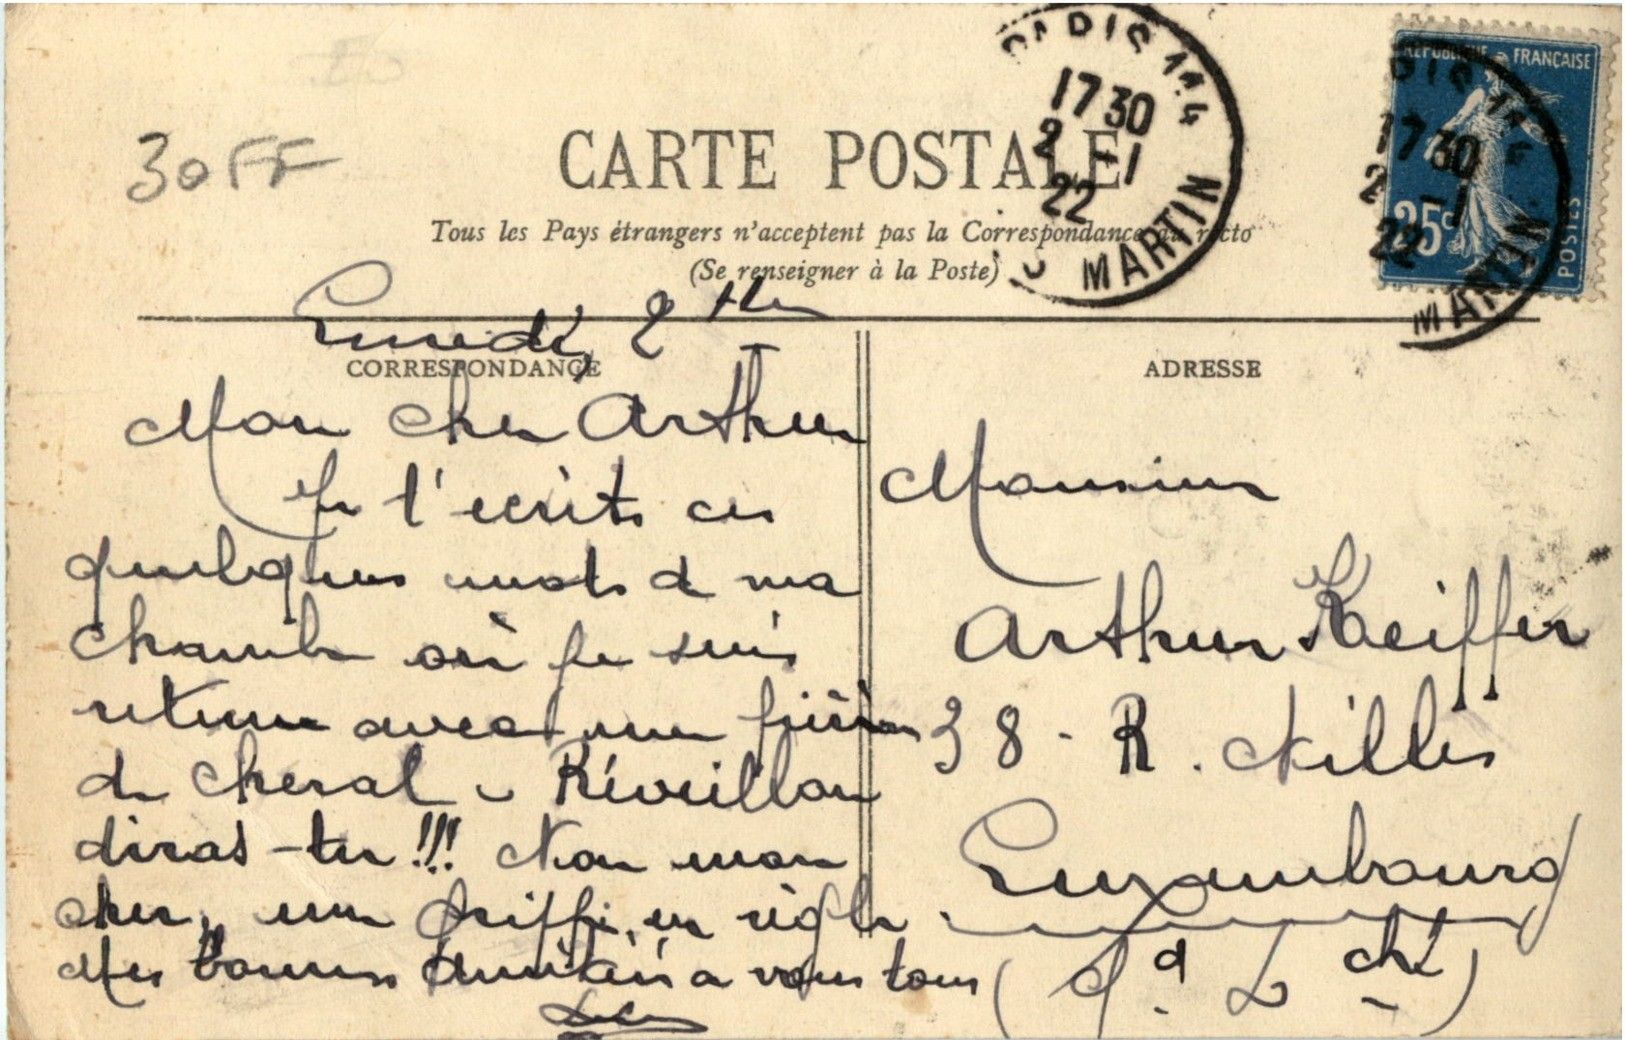 30FF
CARTE POSTALE
Tous les Pays étrangers n'acceptent pas la Correspondance au recto
(Se renseigner à la Poste)
PARIS 114
17 30
2 -1
22
MARTIN
RÉPUBLIQUE FRANÇAISE
25c
POSTES
PARIS 114
17 30
2 -1
22
MARTIN
Lundi, 2
CORRESPONDANCE
Mon cher Arthur
Je t'ecrits ces
quelques mots d ma
chambre où je suis
retenu avec une fièvre
de cheval - Réveillon
diras-tu!!! Non mon
cher, une grippe en règle.
Mes bonnes amitiés a vous tous
ADRESSE
Monsieur
Arthur Keiffer
38 - R.
Luxembourg
(Gd. L ché)